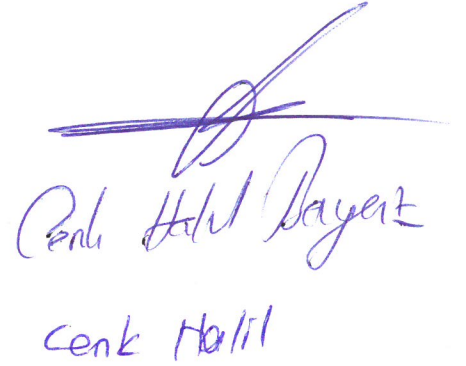 Cenk Halil Bayerz
Cenk Halil